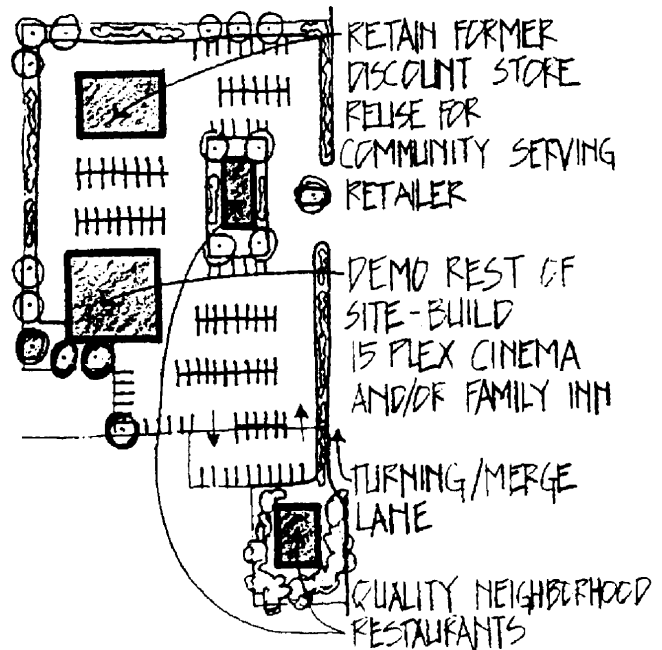 RETAIN FORMER
DISCOUNT STORE
REUSE FOR
COMMUNITY SERVING
RETAILER
DEMO REST OF
SITE-BUILD
15 PLEX CINEMA
AND/OR FAMILY INN
TURNING/MERGE
LANE
QUALITY NEIGHBORHOOD
RESTAURANTS